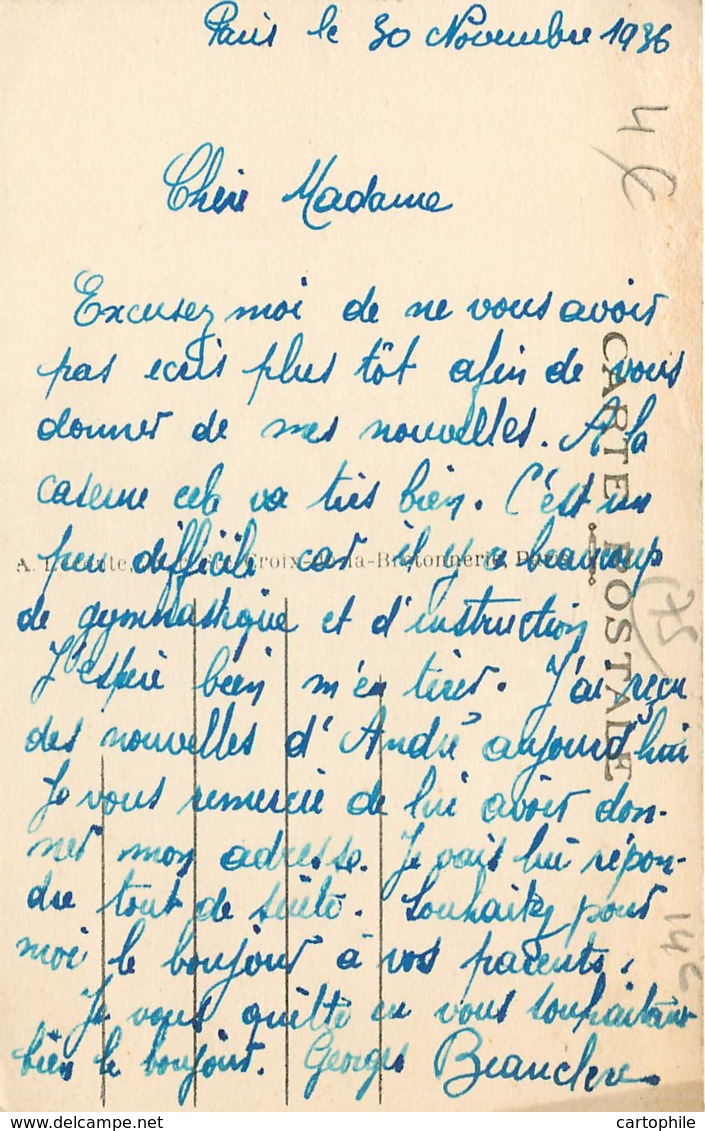 Paris le 30 Novembre 1936
4 €
Chère Madame
Excusez moi de ne vous avoir
pas ecris plus tôt afin de vous
donner de mes nouvelles. A la
caserne cela va très bien. C'est un
peu difficile car il y a beaucoup
de gymnastique et d'instruction
J'espère bien m'en tirer. J'ai reçu
des nouvelles d'André aujourd'hui
Je vous remercie de lui avoir don-
ner mon adresse. Je vais lui répon-
dre tout de suite. Souhaitez pour
moi le bonjour à vos parents.
Je vous quitte en vous souhaitant
bien le bonjour. Georges
CARTE POSTALE
A. Croix-de-la-Bretonnerie,
75
14 c
www.cartophile.com
cartophile